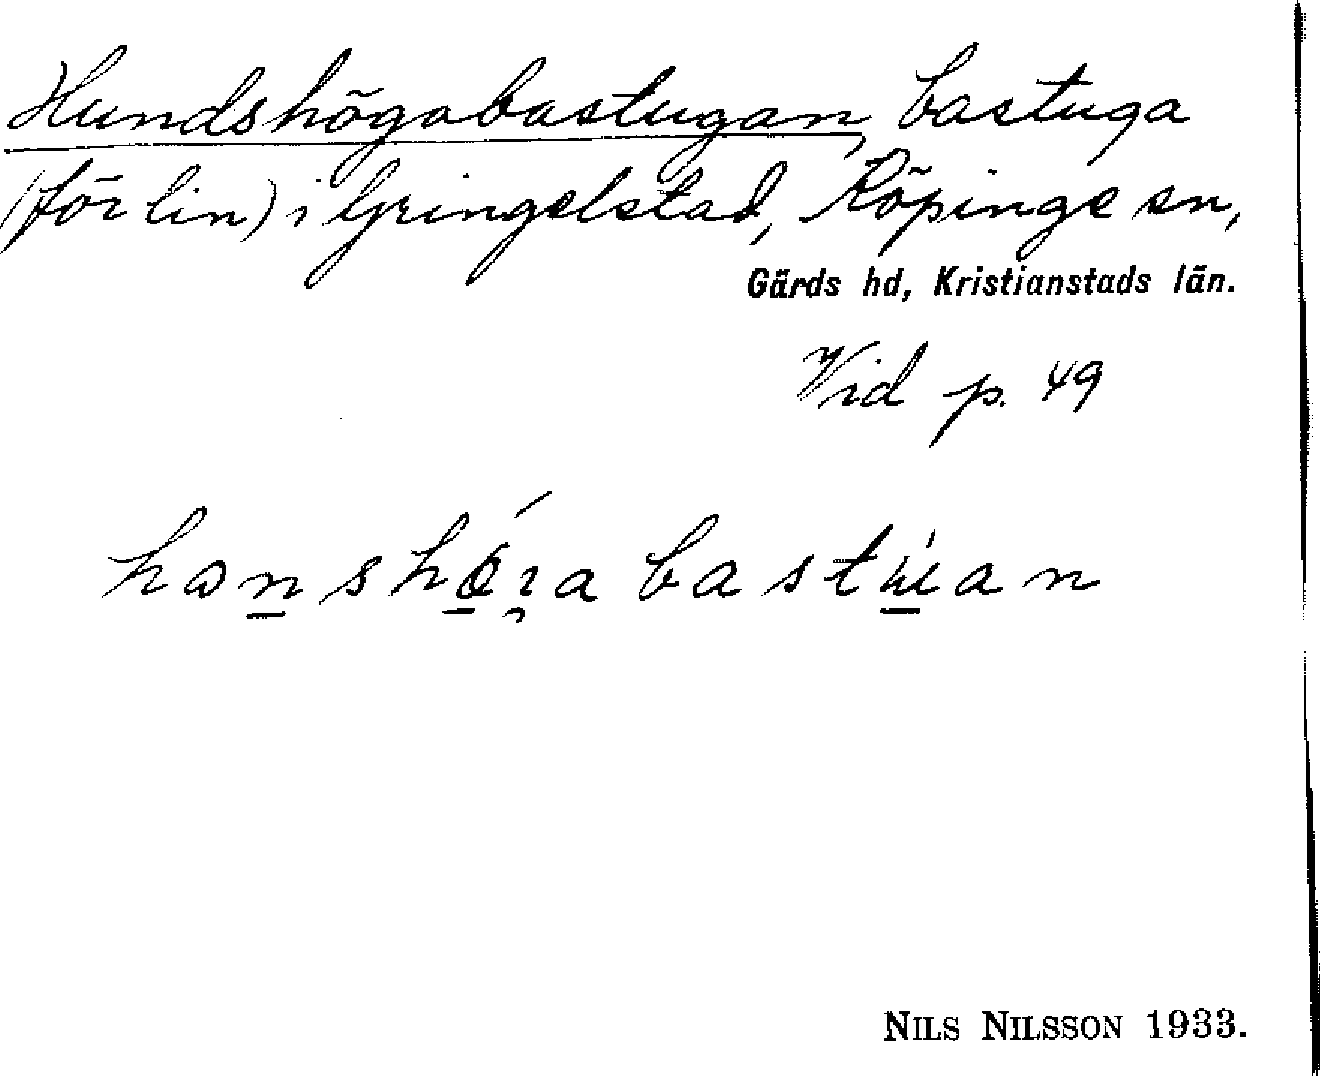 Hundshögabastugan, bastuga
(för lin) i Gringelstad, Köpinge sn,
Gärds hd, Kristianstads län.
Vid p. 49
hanshø̄́ıa bastúan
NILS NILSSON 1933.